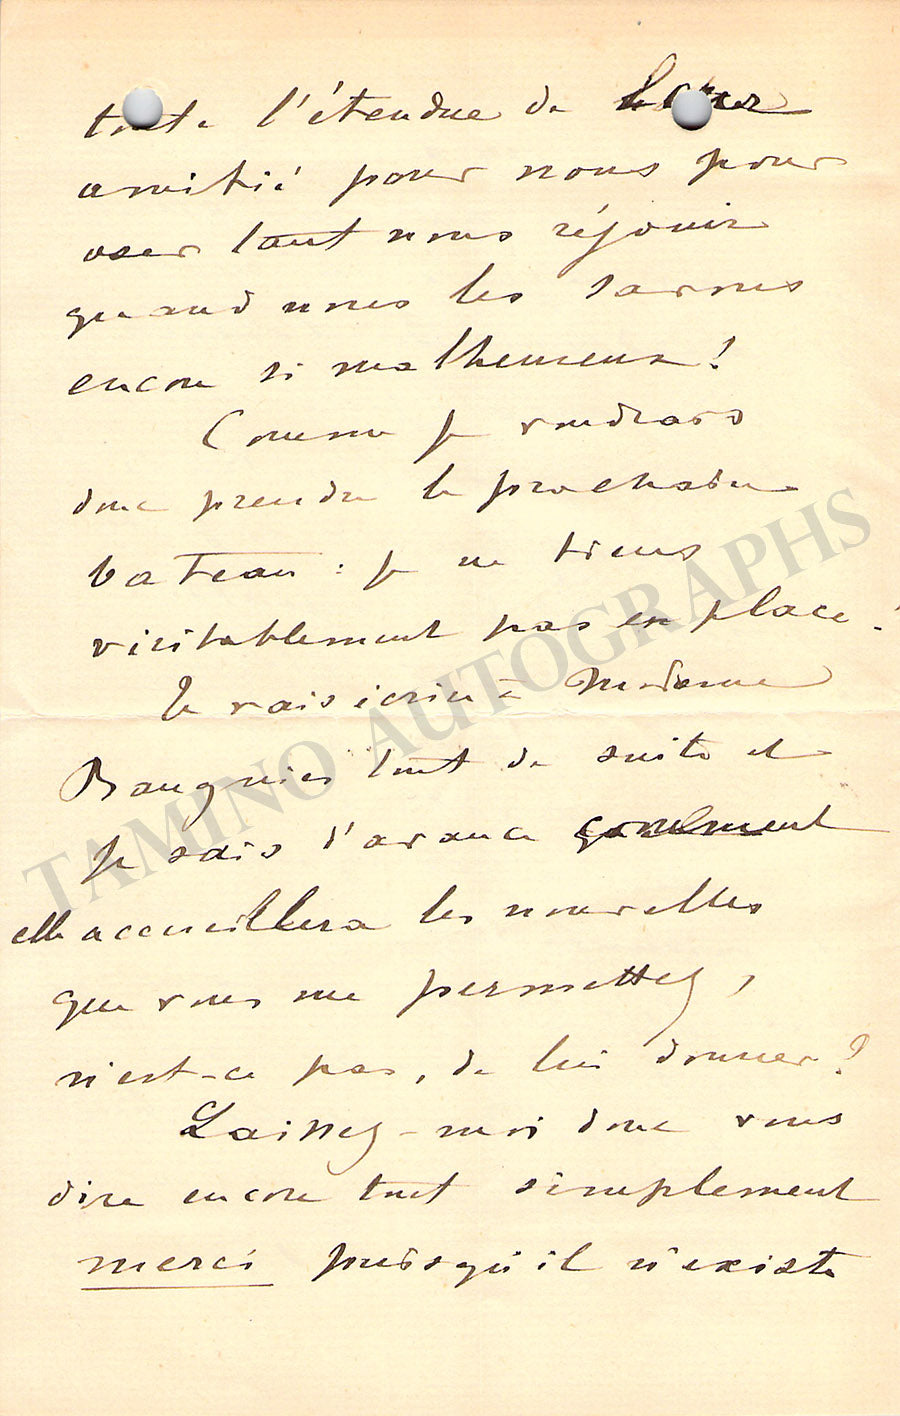 toute l'étendue de leur
amitié pour nous pour
oser tant nous réjouir
quand nous les savons
encore si malheureux !
Comme je voudrais
donc prendre le prochain
bateau : je ne tiens
véritablement pas en place !
Je vais écrire à Madame
Baugnies tout de suite et
je sais d'avance comment
elle accueillera les nouvelles
que vous me permettez,
n'est-ce pas, de lui donner ?
Laissez-moi donc vous
dire encore tout simplement
merci puisqu'il n'existe
TAMINO AUTOGRAPHS